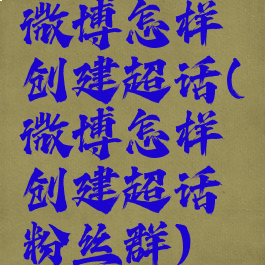 微博怎样
创建超话(
微博怎样
创建超话
粉丝群)